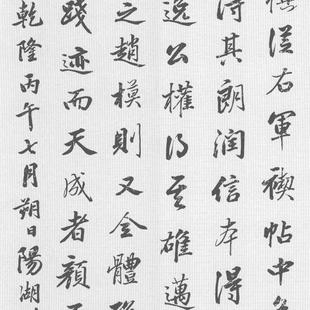 從右軍禊帖中
得其朗潤信本得
逸公權得其雄邁
之趙模則又全體
踐迹而天成者顏
乾隆丙午七月朔日陽湖